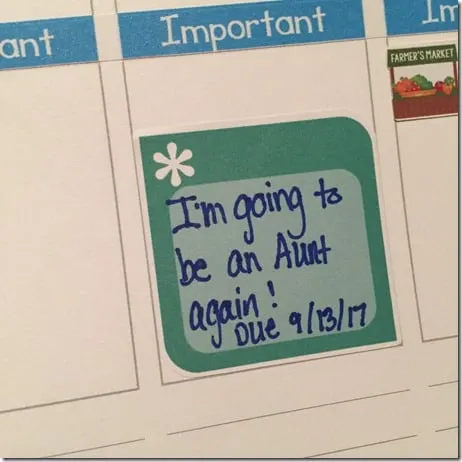 ant
Important
Im
FARMER'S MARKET
I'm going to
be an Aunt
again!
Due 9/13/17